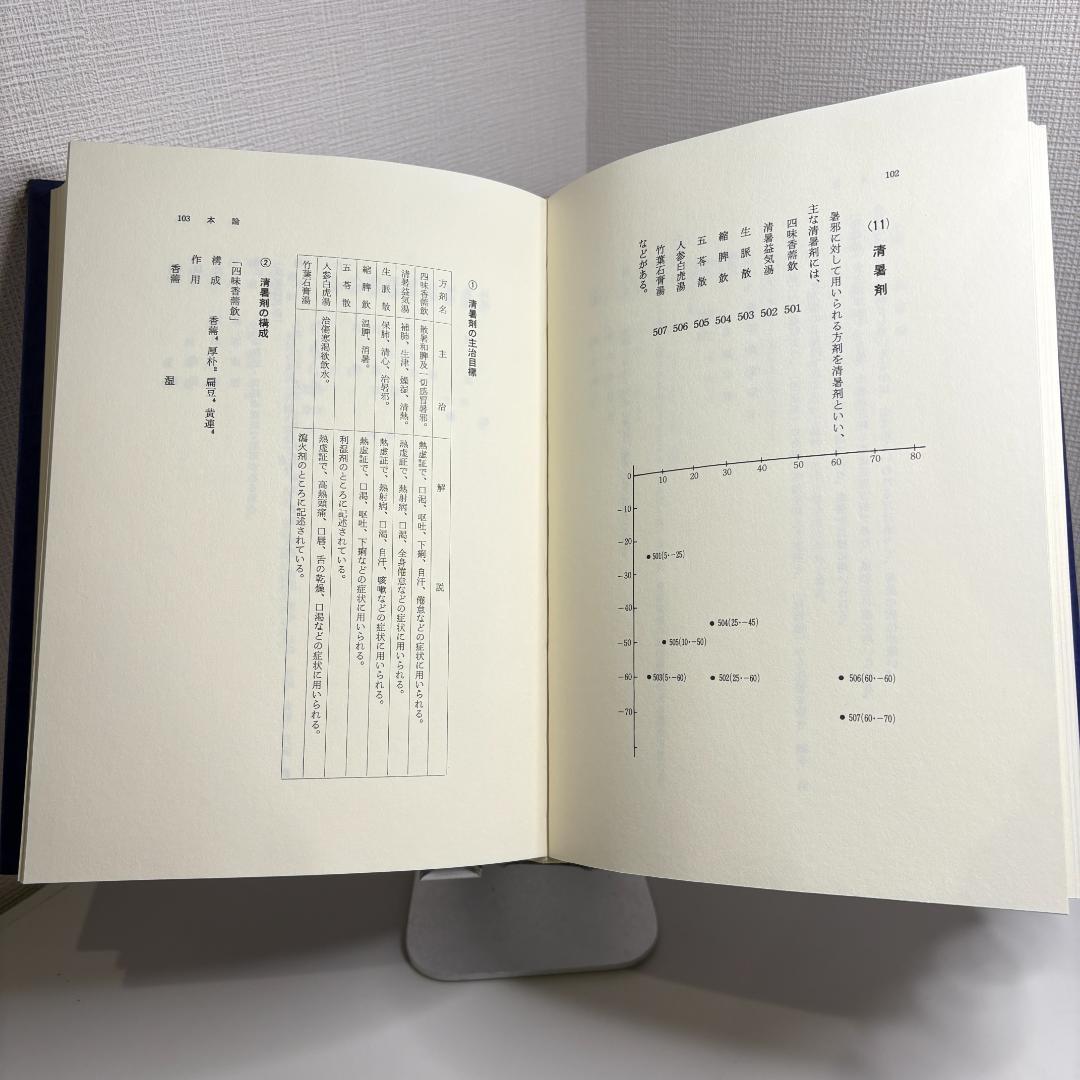 102
(11) 清暑剤
暑邪に対して用いられる方剤を清暑剤といい、
主な清暑剤には、
四味香薷飲 501
清暑益気湯 502
生脈散 503
縮脾飲 504
五苓散 505
人参白虎湯 506
竹葉石膏湯 507
などがある。
0 10 20 30 40 50 60 70 80
-10
-20
-30
-40
-50
-60
-70
501(5・-25)
504(25・-45)
505(10・-50)
503(5・-60)
502(25・-60)
506(60・-60)
507(60・-70)
① 清暑剤の主治目標
方剤名 主治 解説
四味香薷飲 散暑和脾及一切感冒暑邪。 熱虚証で、口渇、嘔吐、下痢、自汗、倦怠などの症状に用いられる。
清暑益気湯 補肺、生津、燥湿、清熱。 熱虚証で、熱射病、口渇、全身倦怠などの症状に用いられる。
生脈散 保肺、清心、治暑邪。 熱虚証で、熱射病、口渇、自汗、咳嗽などの症状に用いられる。
縮脾飲 温脾、消暑。 熱虚証で、口渇、嘔吐、下痢などの症状に用いられる。
五苓散 利湿剤のところに記述されている。
人参白虎湯 治傷寒渇欲飲水。 熱虚証で、高熱頭痛、口唇、舌の乾燥、口渇などの症状に用いられる。
竹葉石膏湯 瀉火剤のところに記述されている。
② 清暑剤の構成
「四味香薷飲」
構成 香薷4 厚朴2 扁豆4 黄連4
作用
香薷 温
103 本論